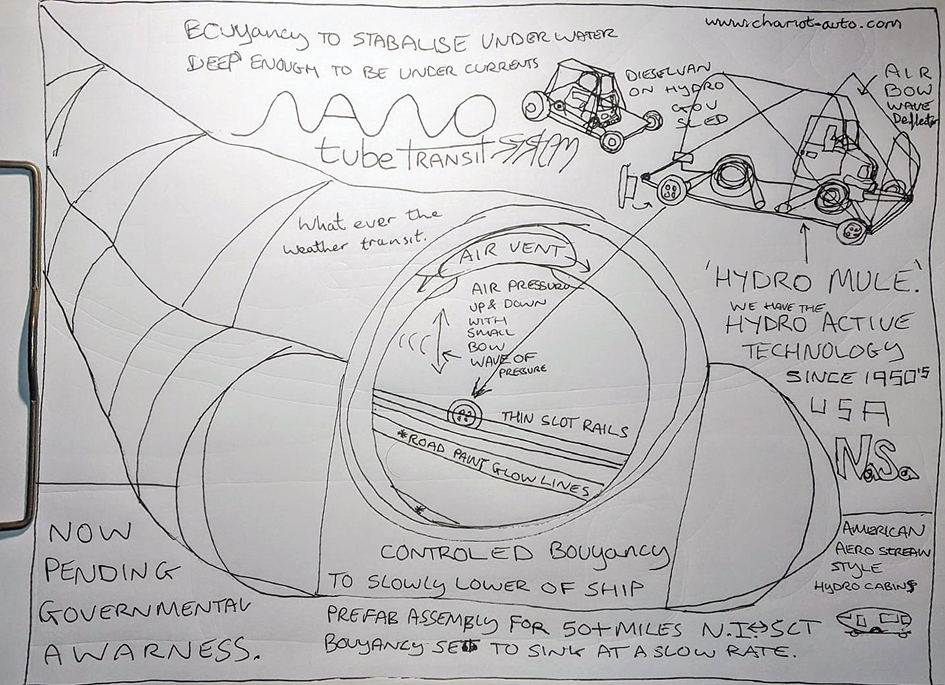 www.chariot-auto.com
BOUYANCY TO STABALISE UNDER WATER
DEEP ENOUGH TO BE UNDER CURRENTS
NANO
tube TRANSIT SYSTEM
DIESELVAN
ON HYDRO
GOV
SLED
AIR
BOW
WAVE
Deflector
What ever the
weather transit.
AIR VENT
AIR PRESSURE
UP & DOWN
WITH
SMALL
BOW
WAVE OF
PRESSURE
THIN SLOT RAILS
*ROAD PAINT GLOW LINES
*
'HYDRO MULE'.
WE HAVE THE
HYDRO ACTIVE
TECHNOLOGY
SINCE 1950'S
USA
N.S.
AMERICAN
AERO STREAM
STYLE
HYDRO CABINS
NOW
PENDING
GOVERNMENTAL
AWARNESS.
CONTROLED BOUYANCY
TO SLOWLY LOWER OF SHIP
PREFAB ASSEMBLY FOR 50+MILES N.I↔SCT
BOUYANCY SET TO SINK AT A SLOW RATE.